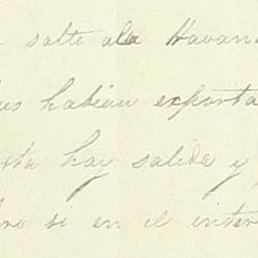 salte ala Havan
us habian exporta
sta hay salido y
ro si en el inter